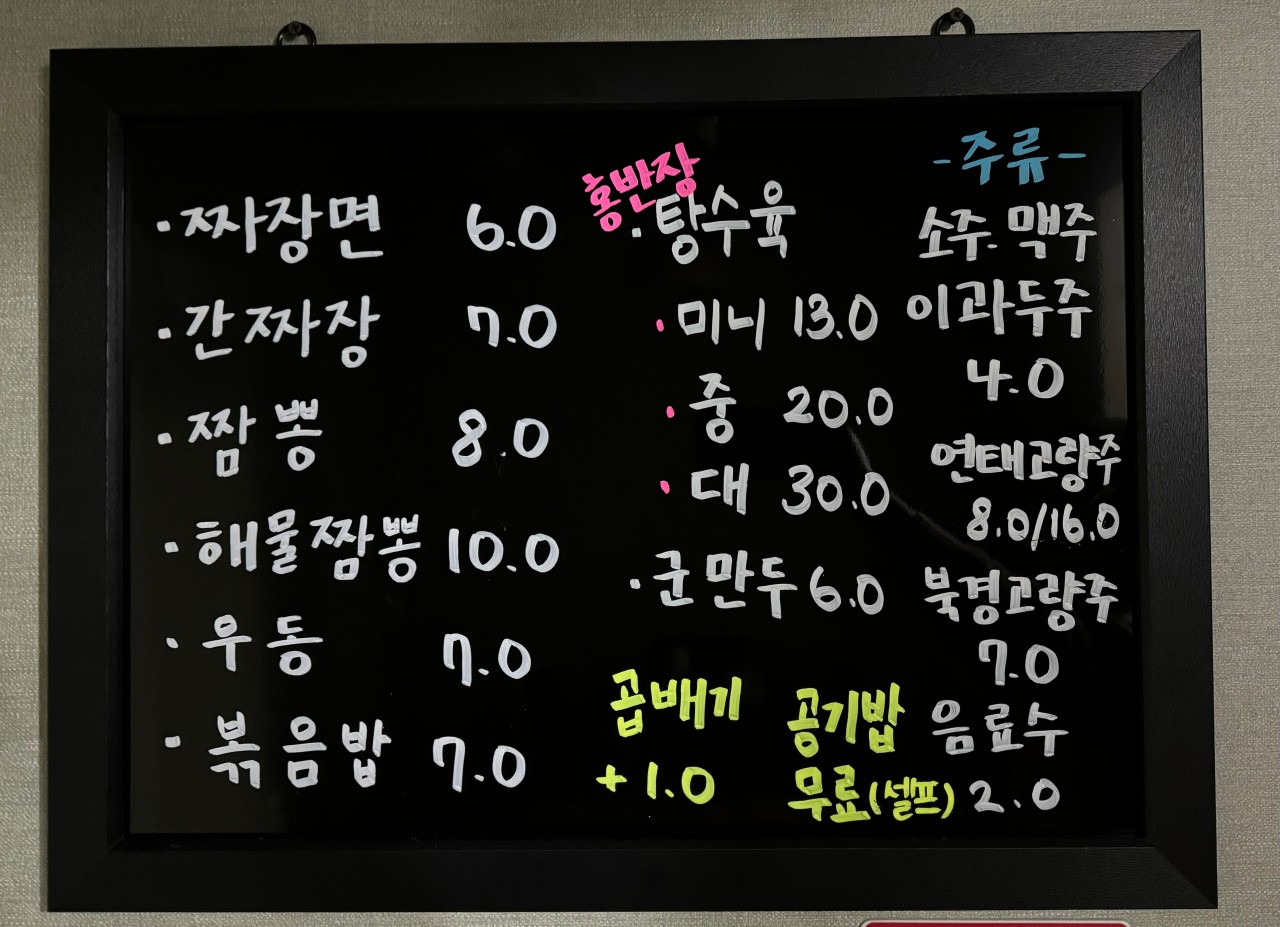 · 짜장면 6.0
· 간짜장 7.0
· 짬뽕 8.0
· 해물짬뽕 10.0
· 우동 7.0
· 볶음밥 7.0
홍반장
· 탕수육
· 미니 13.0
· 중 20.0
· 대 30.0
· 군만두 6.0
곱배기
+1.0
공기밥
무료(셀프)
-주류-
소주. 맥주
이과두주
4.0
연태고량주
8.0/16.0
북경고량주
7.0
음료수
2.0